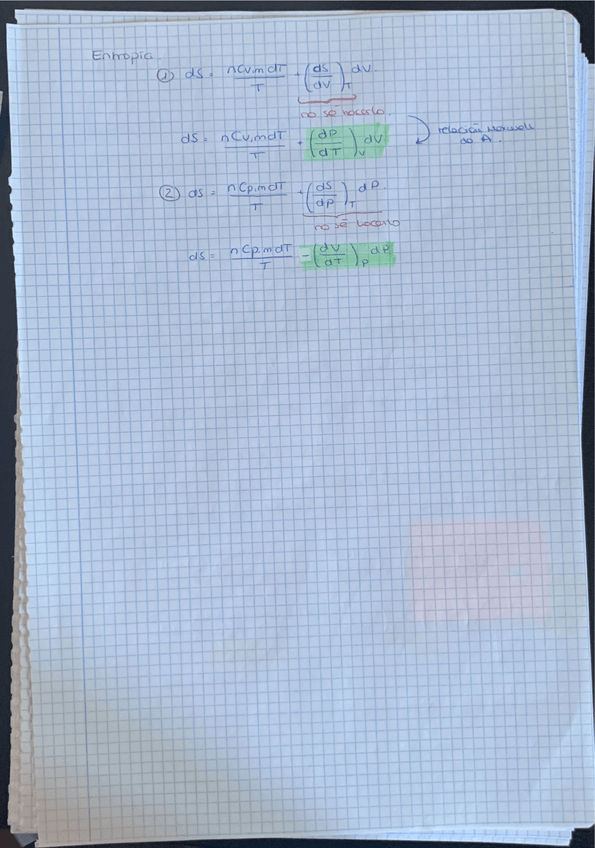 Entropia.
① dS = nCv,m dT / T + (dS/dV)_T dV.
no sé hacerlo.
dS = nCv,m dT / T + (dP/dT)_V dV
relación Maxwell
de A.
② dS = nCp,m dT / T + (dS/dp)_T dP.
no sé hacerlo
dS = nCp,m dT / T - (dV/dT)_P dP